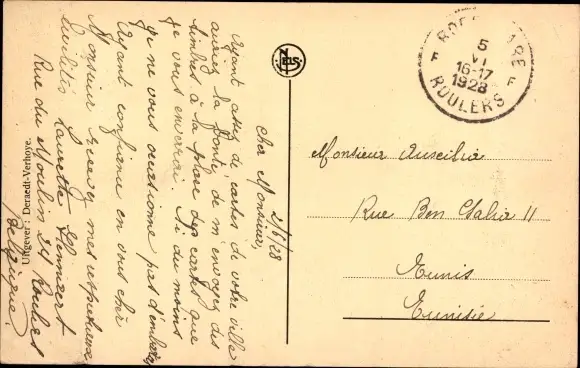 2/6/28
Cher Monsieur,
Ayant assez de cartes de votre ville
auriez la bonté de m'envoyez des
timbres à la place des cartes que
je vous envorai. Si du moins
ça ne vous occasionne pas d'embarras
Ayant confiance en vous cher
Monsieur recevez mes respectueuses
civilités Laurette
Rue du Moulin 24 Roulers
Belgique.
Uitgever: Deraedt-Verhoye.
NELS
ROESELARE
5
VI
16-17
1928
F F
ROULERS
Monsieur Auxilia
Rue Ben Gahia 11
Tunis
Tunisie